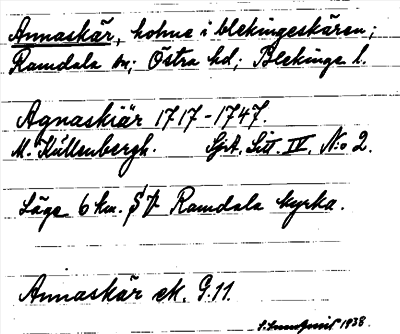 Annaskär, holme i blekingeskären;
Ramdala sn; Östra hd; Blekinge l.
Agnaskiär 1717-1747.
M. Küllenbergh. SjA. Litt. IV. N:o 2.
Läge 6 km. Ramdala kyrka.
Annaskär ek. G.11.
1938.